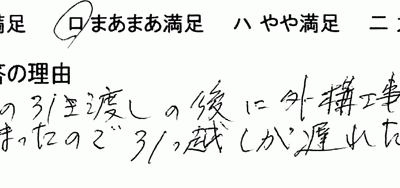 満足 ロ まあまあ満足 ハ やや満足 ニ
答の理由
の引き渡しの後に外構工事
まったので引っ越しが遅れた